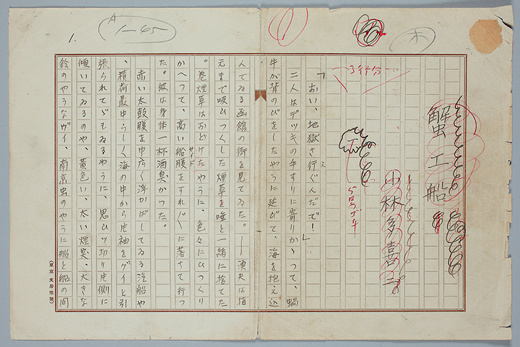 蟹工船
小林多喜二
「おい、地獄さ行ぐんだで!」
二人はデッキの手すりに寄りかゝって、蝸
牛が背のびをしたやうに延びて、海を抱え込
人でゐる函館の街を見てゐた。――漁夫は指
元まで吸ひつくした煙草を唾と一緒に捨てた
。巻煙草はおどけたやうに、色々にひっくり
かへって、高い船腹をすれ〲に落ちて行っ
た。彼は身体一杯酒臭かった。
赤い太鼓腹を巾広く浮かばしてゐる汽船や
、積荷最中らしく海の中から片袖をグイと引
張られてゞもゐるやうに、思ひッ切り片側に
傾いてゐるのや、黄色い、太い煙突、大きな
鈴のやうなヴイ、南京虫のやうに船と船の間
1.
A
1–45